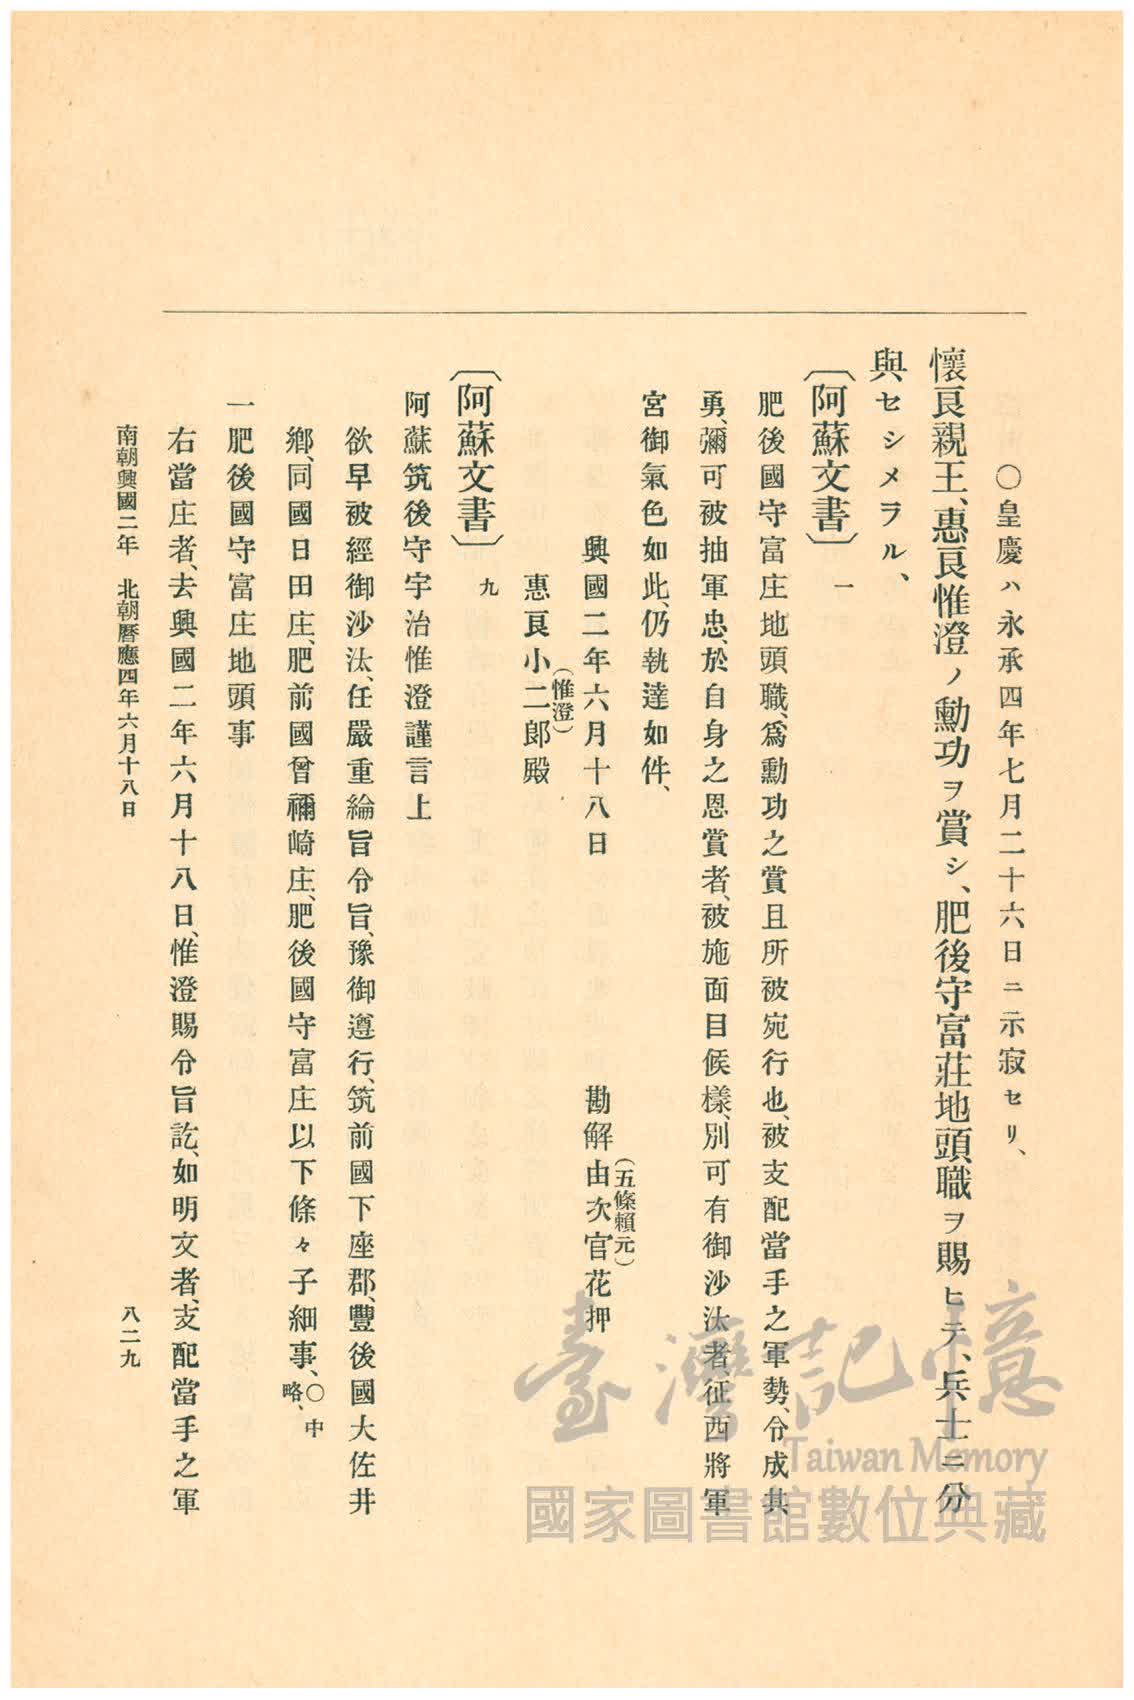 ○皇慶ハ永承四年七月二十六日ニ示寂セリ、
懷良親王、惠良惟澄ノ勳功ヲ賞シ、肥後守富莊地頭職ヲ賜ヒテ、兵士ニ分
與セシメラル、
〔阿蘇文書〕一
肥後國守富庄地頭職、爲勳功之賞且所被宛行也、被支配當手之軍勢、令成其
勇、彌可被抽軍忠、於自身之恩賞者、被施面目候樣、別可有御沙汰者、征西將軍
宮御氣色如此、仍執達如件、
興國二年六月十八日 勘解由次官花押
(五條賴元)
惠良小二郎殿
(惟澄)
〔阿蘇文書〕九
阿蘇筑後守宇治惟澄謹言上
欲早被經御沙汰、任嚴重綸旨令旨、豫御遵行、筑前國下座郡、豐後國大佐井
鄕、同國日田庄、肥前國曾禰崎庄、肥後國守富庄以下條々子細事、○中略、
一肥後國守富庄地頭事
右當庄者、去興國二年六月十八日、惟澄賜令旨訖、如明文者、支配當手之軍
南朝興國二年 北朝曆應四年六月十八日
八二九
臺灣記憶
Taiwan Memory
國家圖書館數位典藏